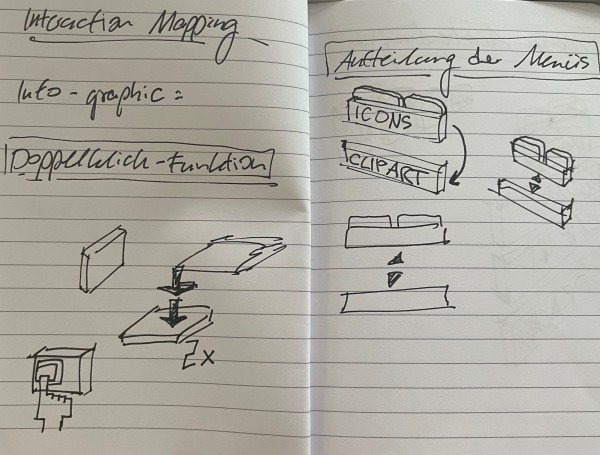 Interaction Mapping
Info-graphic =
Doppelklick-Funktion
2x
Aufteilung der Menüs
ICONS
CLIPART